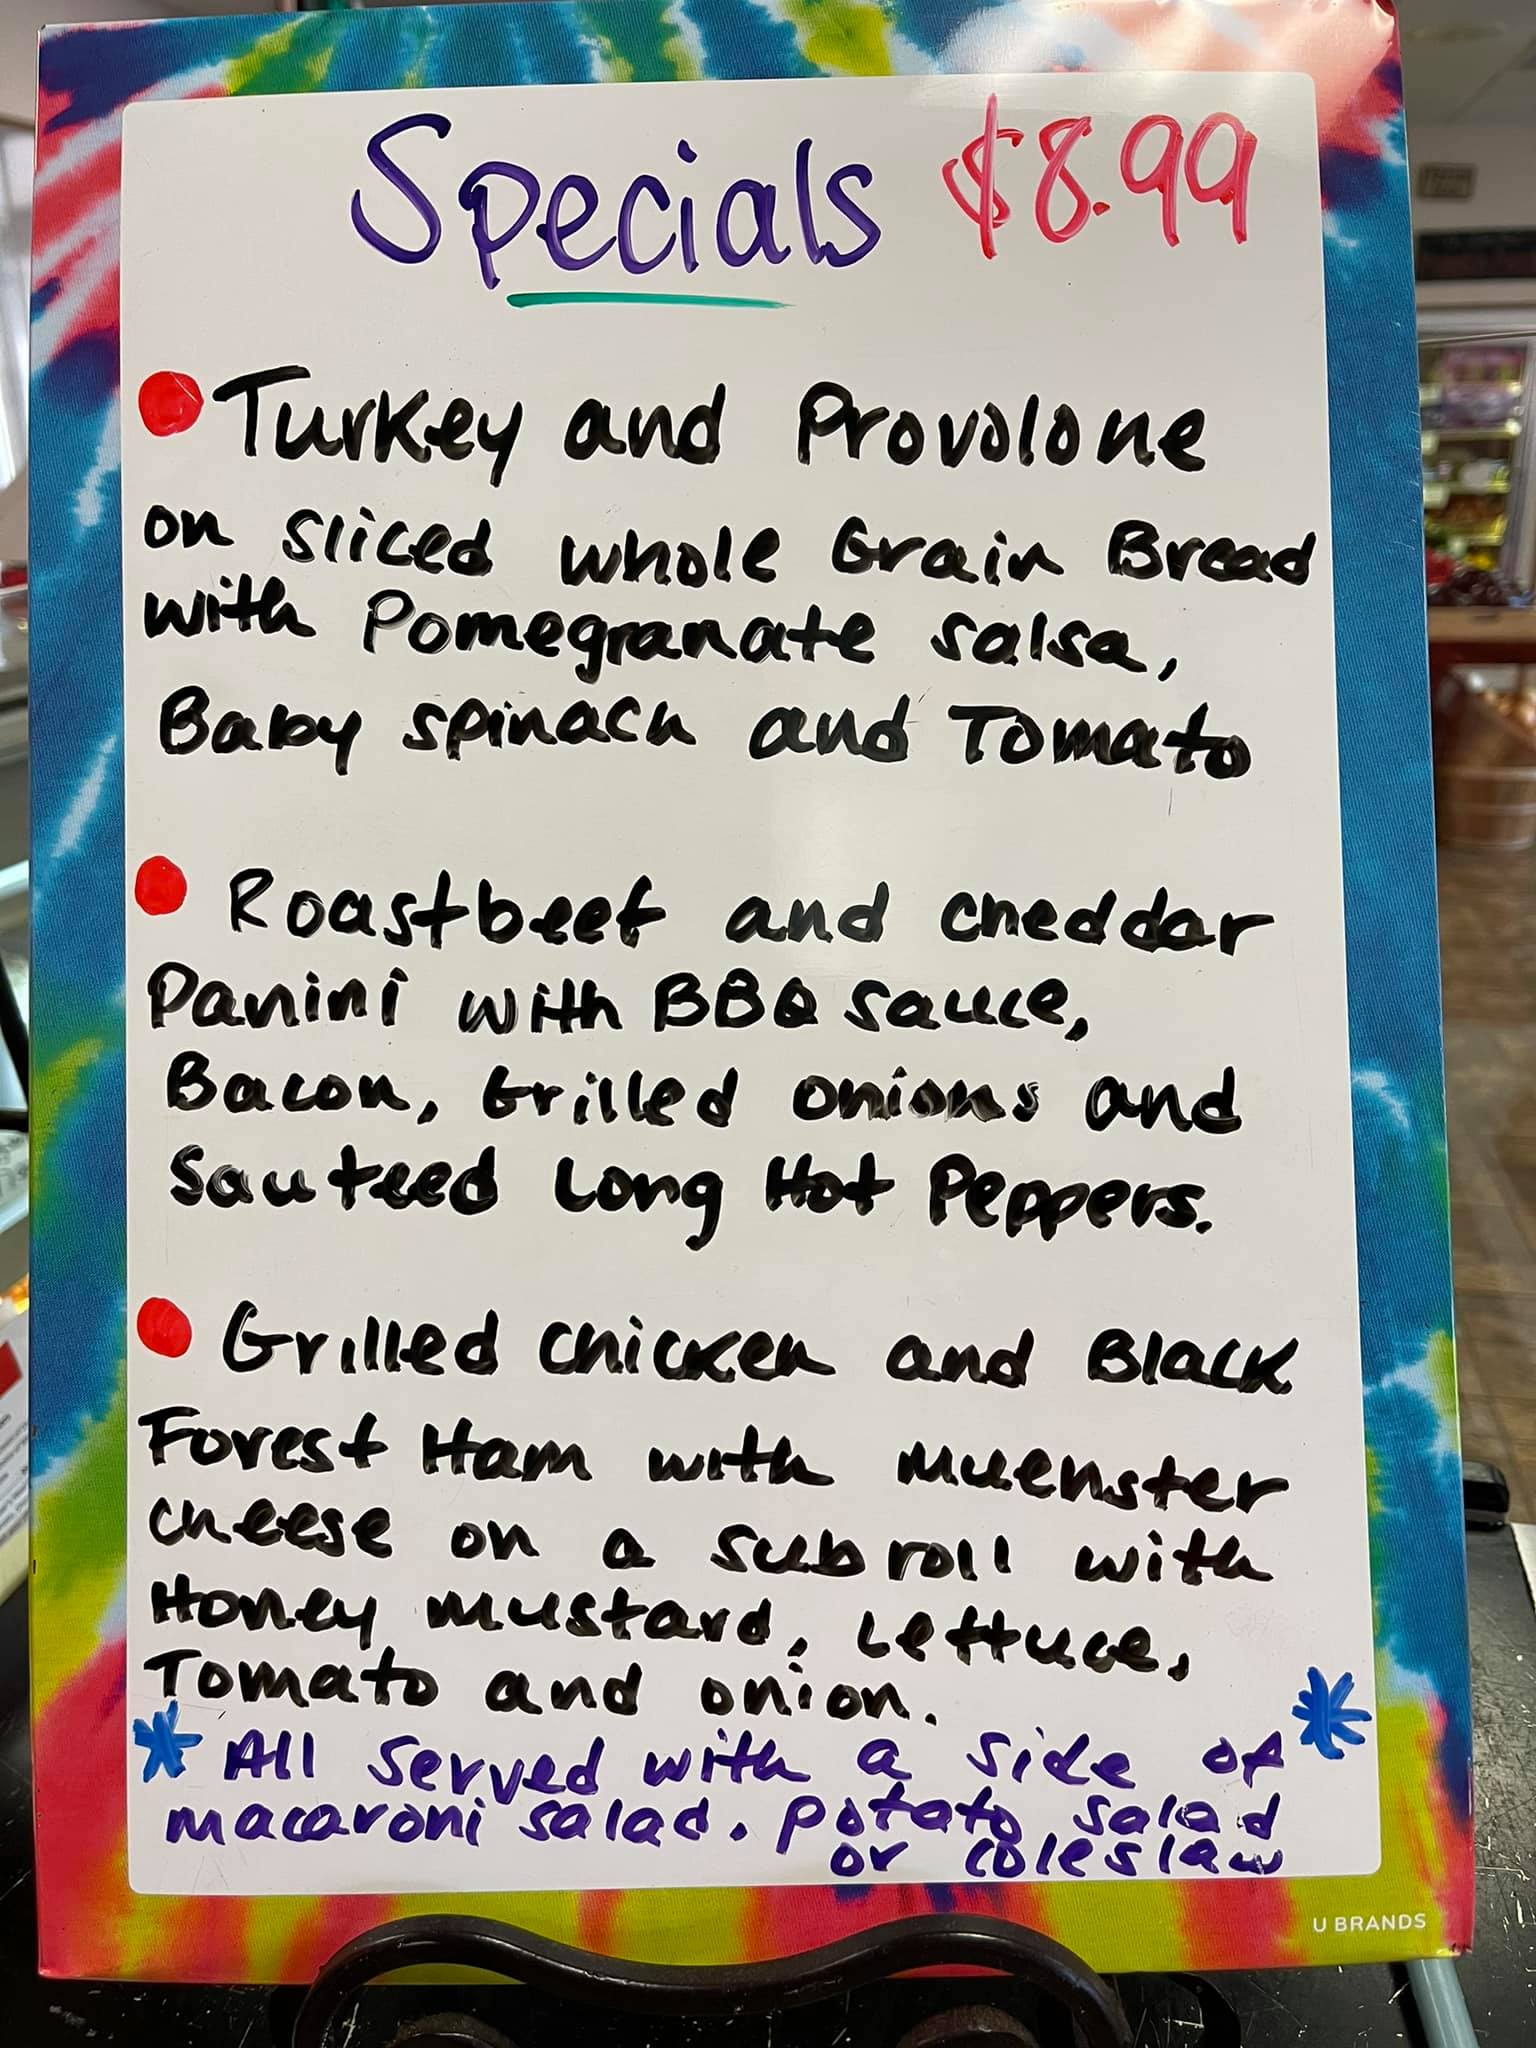 Specials $8.99
Turkey and Provolone
on sliced whole Grain Bread
with Pomegranate salsa,
Baby spinach and Tomato
Roastbeef and cheddar
Panini with BBQ sauce,
Bacon, Grilled onions and
Sauteed Long Hot Peppers.
Grilled chicken and Black
Forest Ham with muenster
cheese on a sub roll with
Honey mustard, Lettuce,
Tomato and onion.
* All served with a side of *
macaroni salad. potato salad
or coleslaw
U BRANDS